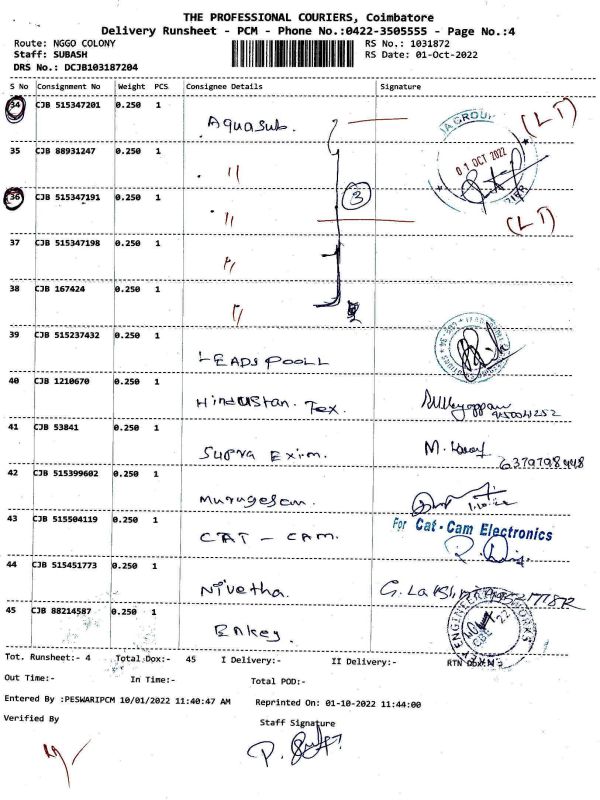 THE PROFESSIONAL COURIERS, Coimbatore
Delivery Runsheet - PCM - Phone No.:0422-3505555 - Page No.:4
Route: NGGO COLONY RS No.: 1031872
Staff: SUBASH RS Date: 01-Oct-2022
DRS No.: DCJB103187204
S No Consignment No Weight PCS Consignee Details Signature
34 CJB 515347201 0.250 1 Aquasub. (LT)
35 CJB 88931247 0.250 1 " 01 OCT 2022
36 CJB 515347191 0.250 1 " 3 (LT)
37 CJB 515347198 0.250 1 "
38 CJB 167424 0.250 1 "
39 CJB 515237432 0.250 1 LEADSPOOLL
40 CJB 1210670 0.250 1 Hindustan. Tex.
41 CJB 53841 0.250 1 Supra Exim. M.
42 CJB 515399602 0.250 1 Murugesan. 1.10.22
43 CJB 515504119 0.250 1 CAT - CAM. For Cat - Cam Electronics
44 CJB 515451773 0.250 1 Nivetha.
45 CJB 88214587 0.250 1 Enkey.
Tot. Runsheet:- 4 Total Dox:- 45 I Delivery:- II Delivery:- RTN Dox
Out Time:- In Time:- Total POD:-
Entered By :PESWARIPCM 10/01/2022 11:40:47 AM Reprinted On: 01-10-2022 11:44:00
Verified By Staff Signature